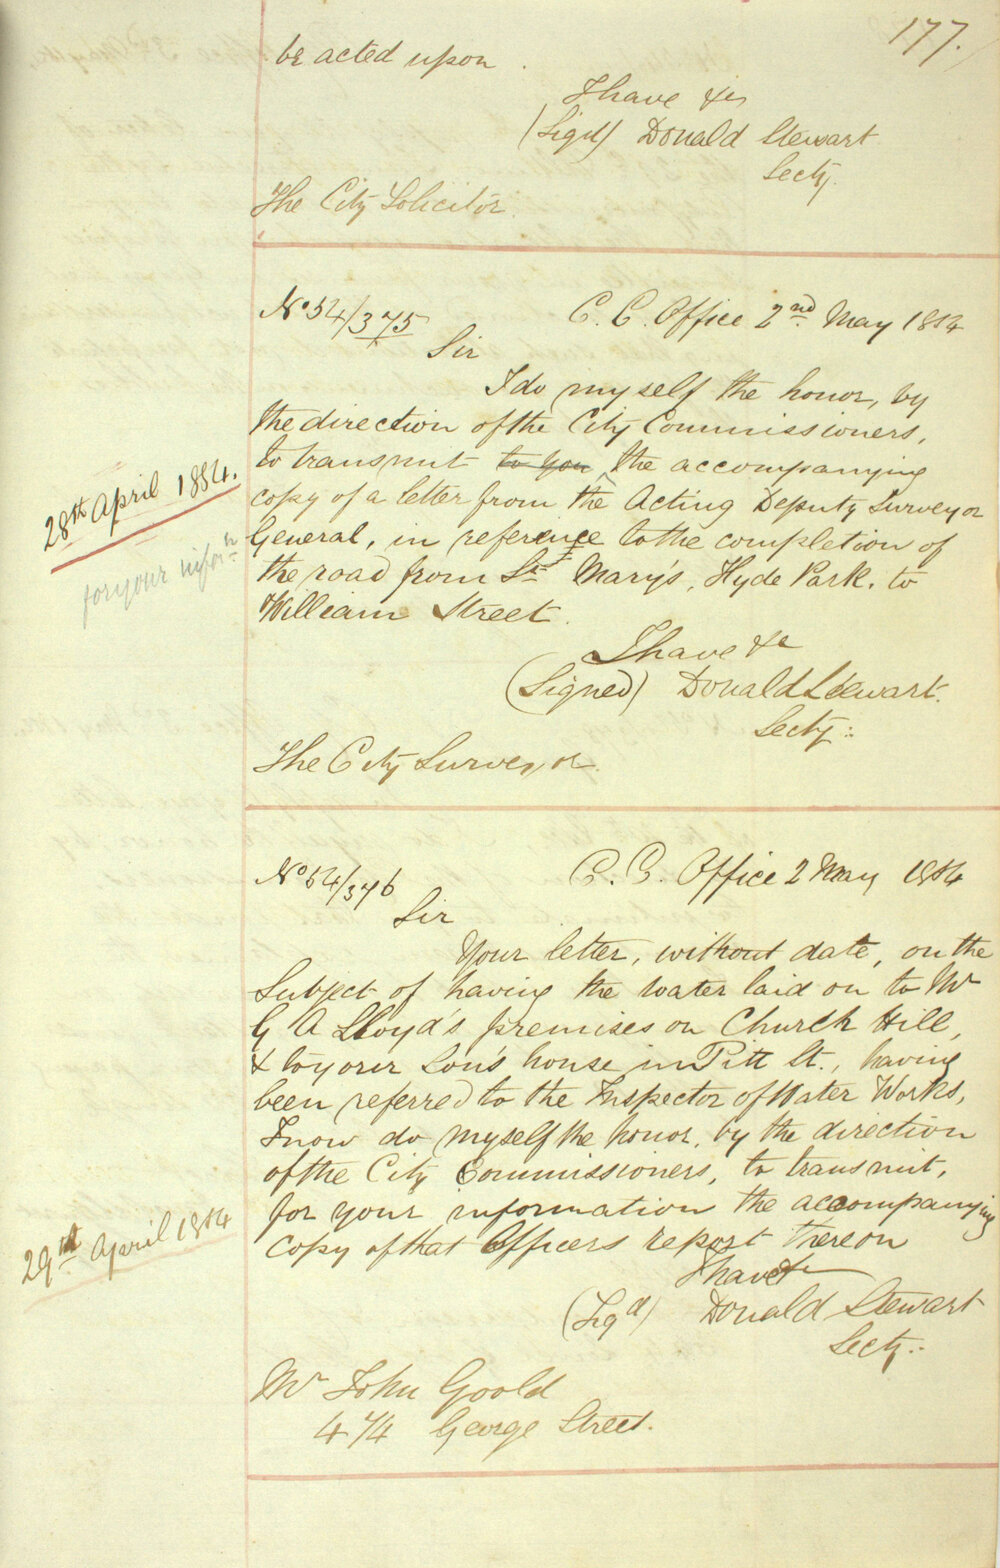 177.
be acted upon.
I have &c
(Sigd) Donald Stewart
Secty.
The City Solicitor.
No 54/375
C. C. Office 2nd May 1854
Sir
I do myself the honor, by
the direction of the City Commissioners,
to transmit to you the accompanying
28th April 1854.
copy of a letter from the Acting Deputy Surveyor
General, in reference to the completion of
for your inforn
the road from St Mary's, Hyde Park, to
William Street.
I have &c
(Signed) Donald Stewart.
Secty:
The City Surveyor.
No 54/376
C. C. Office 2 May 1854
Sir
Your letter, without date, on the
Subject of having the water laid on to Mr
G A Lloyd's premises on Church Hill,
& to your Son's house in Pitt St., having
been referred to the Inspector of Water Works,
I now do myself the honor, by the direction
of the City Commissioners, to transmit,
for your information the accompanying
29th April 1854
copy of that Officers report thereon
I have &c
(Sigd) Donald Stewart
Secty:
Mr John Goold
474 George Street.